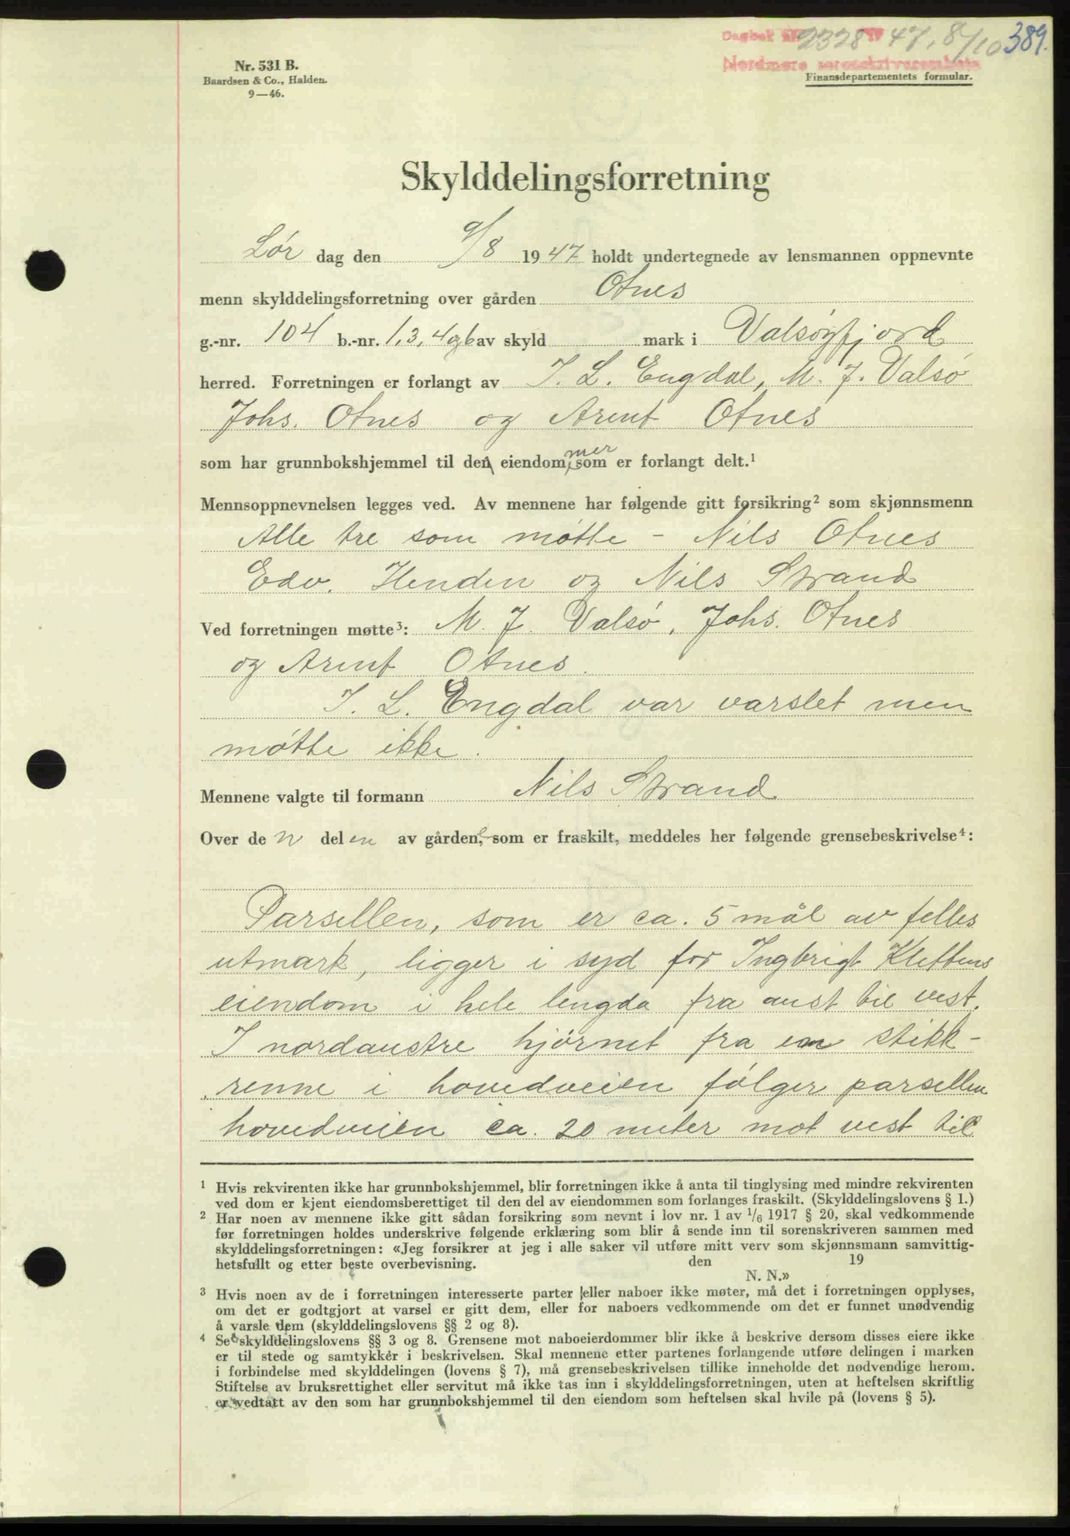 Dagbok nr. 2328 19 47, 8/10 389.
Nordmøre sorenskriverembete
Nr. 531 B.
Baardsen & Co., Halden.
9—46.
Finansdepartementets formular.
Skylddelingsforretning
Lør dag den 9/8 1947 holdt undertegnede av lensmannen oppnevnte
menn skylddelingsforretning over gården Otnes
g.-nr. 104 b.-nr. 1, 3, 4 og 6 av skyld mark i Valsøyfjord
herred. Forretningen er forlangt av I. L. Engdal, M. J. Valsø
Johs. Otnes og Arent Otnes
som har grunnbokshjemmel til den eiendommer, som er forlangt delt.¹
Mennsoppnevnelsen legges ved. Av mennene har følgende gitt forsikring² som skjønnsmenn
Alle tre som møtte - Nils Otnes
Edv. Henden og Nils Strand
Ved forretningen møtte³: M. J. Valsø, Johs. Otnes
og Arent Otnes.
I. L. Engdal var varslet men
møtte ikke.
Mennene valgte til formann Nils Strand
Over de n del en av gården, som er fraskilt, meddeles her følgende grensebeskrivelse⁴:
Parsellen, som er ca. 5 mål av felles
utmark, ligger i syd for Ingbrigt Klettens
eiendom i hele lengda fra aust til vest.
I nordaustre hjørnet fra en stikk-
renne i hovedveien følger parsellen
hovedveien ca. 20 meter mot vest til
¹ Hvis rekvirenten ikke har grunnbokshjemmel, blir forretningen ikke å anta til tinglysing med mindre rekvirenten
ved dom er kjent eiendomsberettiget til den del av eiendommen som forlanges fraskilt. (Skylddelingslovens § 1.)
² Har noen av mennene ikke gitt sådan forsikring som nevnt i lov nr. 1 av 1/6 1917 § 20, skal vedkommende
før forretningen holdes underskrive følgende erklæring som blir å sende inn til sorenskriveren sammen med
skylddelingsforretningen: «Jeg forsikrer at jeg i alle saker vil utføre mitt verv som skjønnsmann samvittig-
hetsfullt og etter beste overbevisning. den 19
N. N.»
³ Hvis noen av de i forretningen interesserte parter eller naboer ikke møter, må det i forretningen opplyses,
om det er godtgjort at varsel er gitt dem, eller for naboers vedkommende om det er funnet unødvendig
å varsle dem (skylddelingslovens §§ 2 og 8).
⁴ Se skylddelingslovens §§ 3 og 8. Grensene mot naboeierdommer blir ikke å beskrive dersom disses eiere ikke
er til stede og samtykker i beskrivelsen. Skal mennene etter partenes forlangende utføre delingen i marken
i forbindelse med skylddelingen (lovens § 7), må grensebeskrivelsen tillike inneholde det nødvendige herom.
Stiftelse av bruksrettighet eller servitut må ikke tas inn i skylddelingsforretningen, uten at heftelsen skriftlig
er vedtatt av den som har grunnbokshjemmel til den eiendom som heftelsen skal hvile på (lovens § 5).